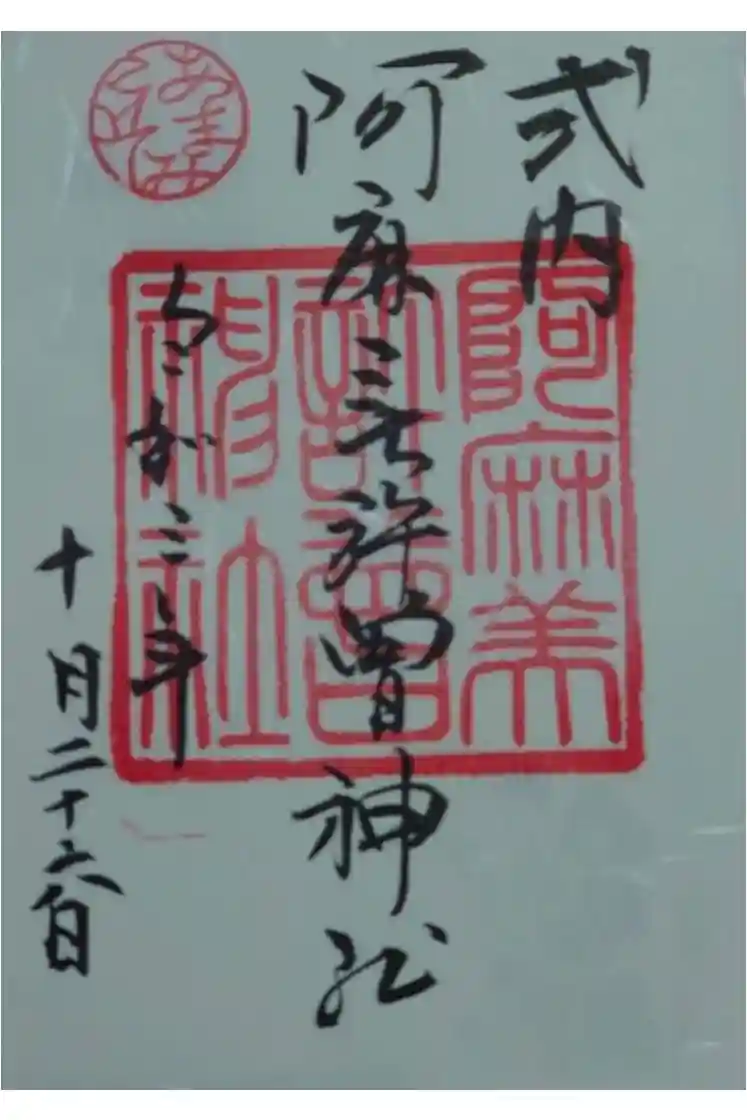 式内
阿麻美許曽神社
令和三年
十月二十六日
阿麻美
許曽
神社